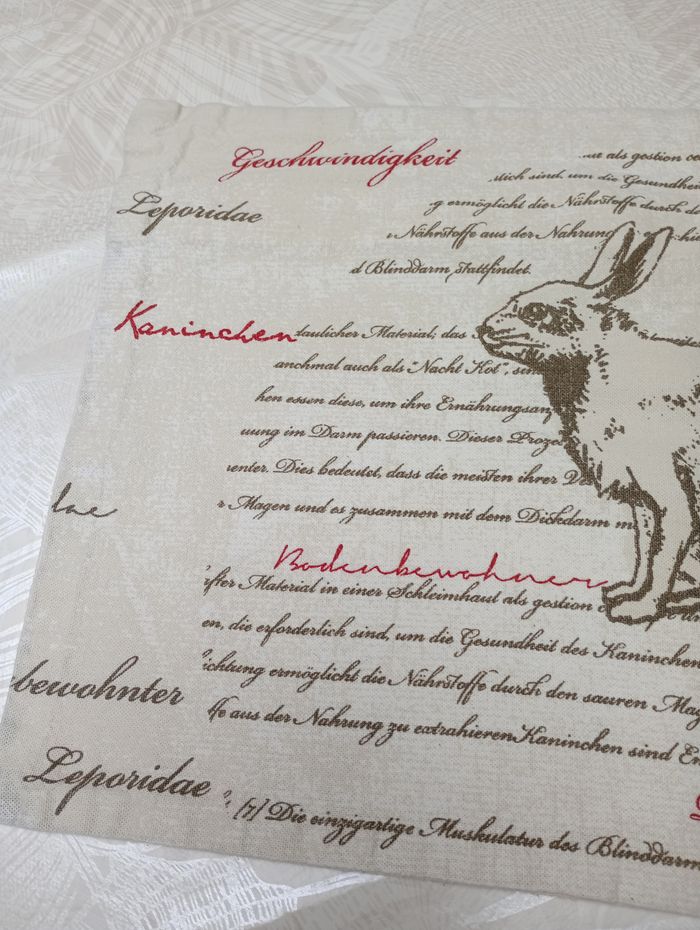 Geschwindigkeit
als gestion
sind, um die Gesundhe
Leporidae
g ermöglicht die Nährstoffe durch d
Nährstoffe aus der Nahrung
d Blinddarm stattfindet.
Kaninchen
daulicher Material; das
anchmal auch als "Nacht Kot", sin
hen essen diese, um ihre Ernährungsan
uung im Darm passieren. Dieser Proze
enter. Dies bedeutet, dass die meisten ihrer V
r Magen und es zusammen mit dem Dickdarm m
dae
Bodenbewohner
fter Material in einer Schleimhaut als gestion
en, die erforderlich sind, um die Gesundheit des Kaninchen
ichtung ermöglicht die Nährstoffe durch den sauren Mag
bewohnter
ffe aus der Nahrung zu extrahieren Kaninchen sind En
Leporidae
[7] Die einzigartige Muskulatur des Blinddarm